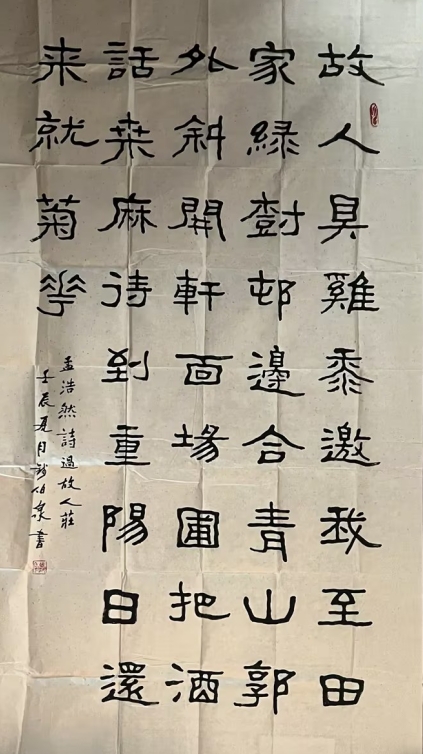 故人具雞黍邀我至田
家綠樹邨邊合青山郭
外斜開軒面場圃把酒
話桒麻待到重陽日還
来就菊花
孟浩然詩過故人莊
壬辰夏月伯泉書